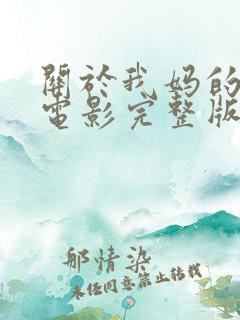 關於我妈的
電影完整版
郁情染
未经同意禁止转载